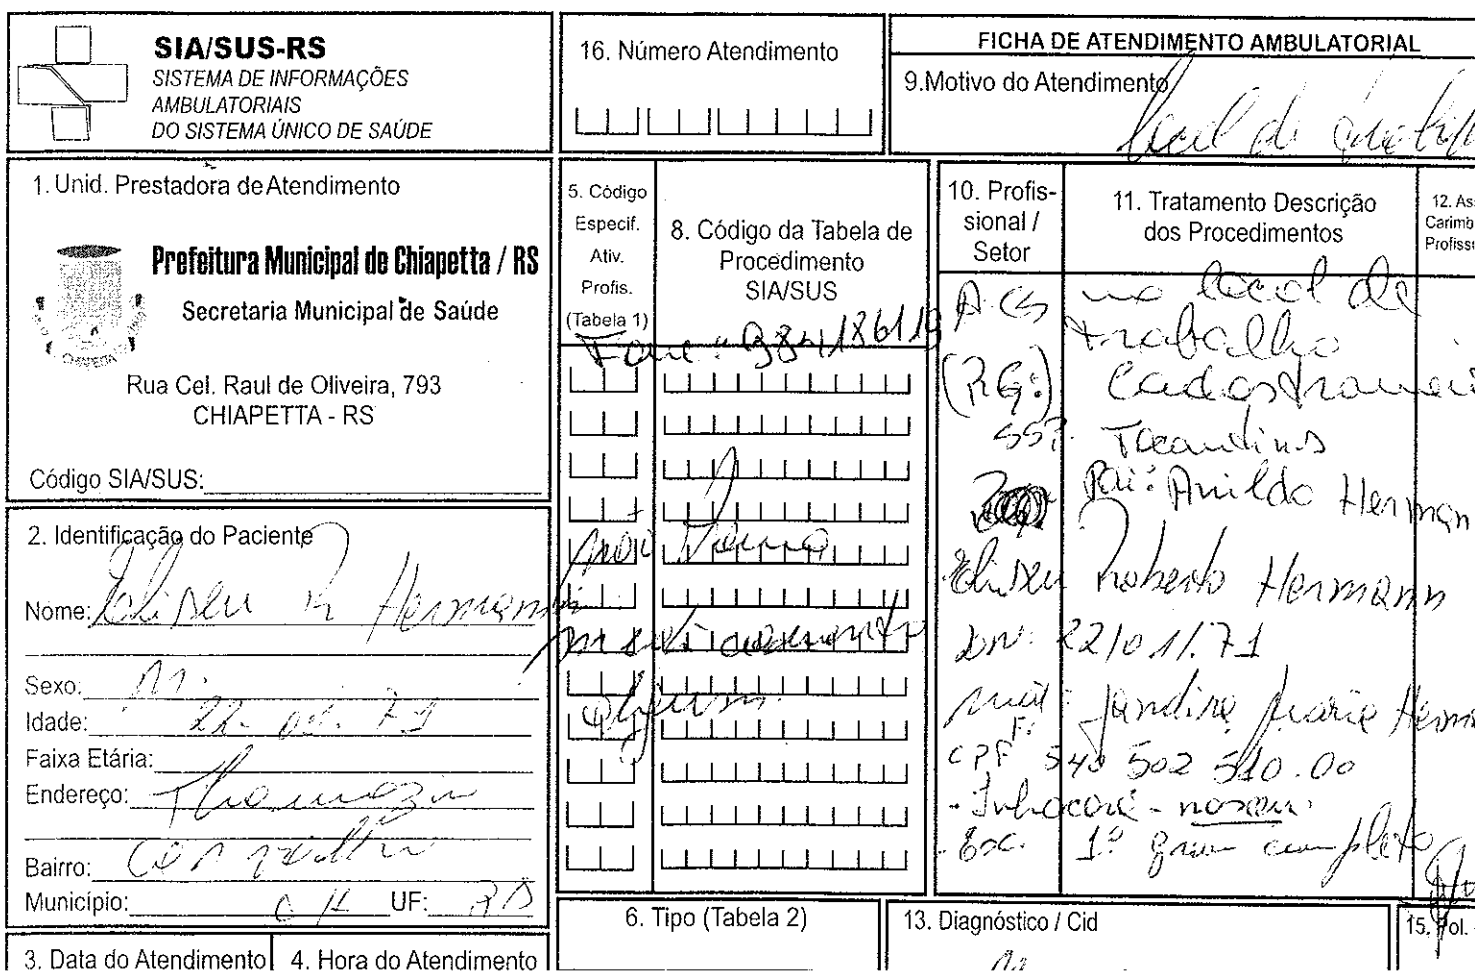 SIA/SUS-RS
SISTEMA DE INFORMAÇÕES
AMBULATORIAIS
DO SISTEMA ÚNICO DE SAÚDE
16. Número Atendimento
FICHA DE ATENDIMENTO AMBULATORIAL
9.Motivo do Atendimento
local de
1. Unid. Prestadora de Atendimento
Prefeitura Municipal de Chiapetta / RS
Secretaria Municipal de Saúde
Rua Cel. Raul de Oliveira, 793
CHIAPETTA - RS
Código SIA/SUS:
2. Identificação do Paciente
Nome: Eliseu R Hermann
Sexo: M.
Idade: 22. 01. 71
Faixa Etária:
Endereço:
Bairro:
Município: CH UF: RS
3. Data do Atendimento
4. Hora do Atendimento
5. Código
Especif.
Ativ.
Profis.
(Tabela 1)
8. Código da Tabela de
Procedimento
SIA/SUS
Fone: 984186119
não toma
medicamento
algum
6. Tipo (Tabela 2)
10. Profis-
sional /
Setor
11. Tratamento Descrição
dos Procedimentos
12. As
Carimb
Profiss
A.CS no local de
trabalho
(RG:)
SSP. Tocantins
Pai: Anildo Herman
Eliseu Roberto Hermann
DN: 22/01/.71
mãe: Jandira Maria Herm
CPF 540 502 510.00
- Inhacorá - nasceu
- Esc. 1º grau completo
13. Diagnóstico / Cid
15. Pol.